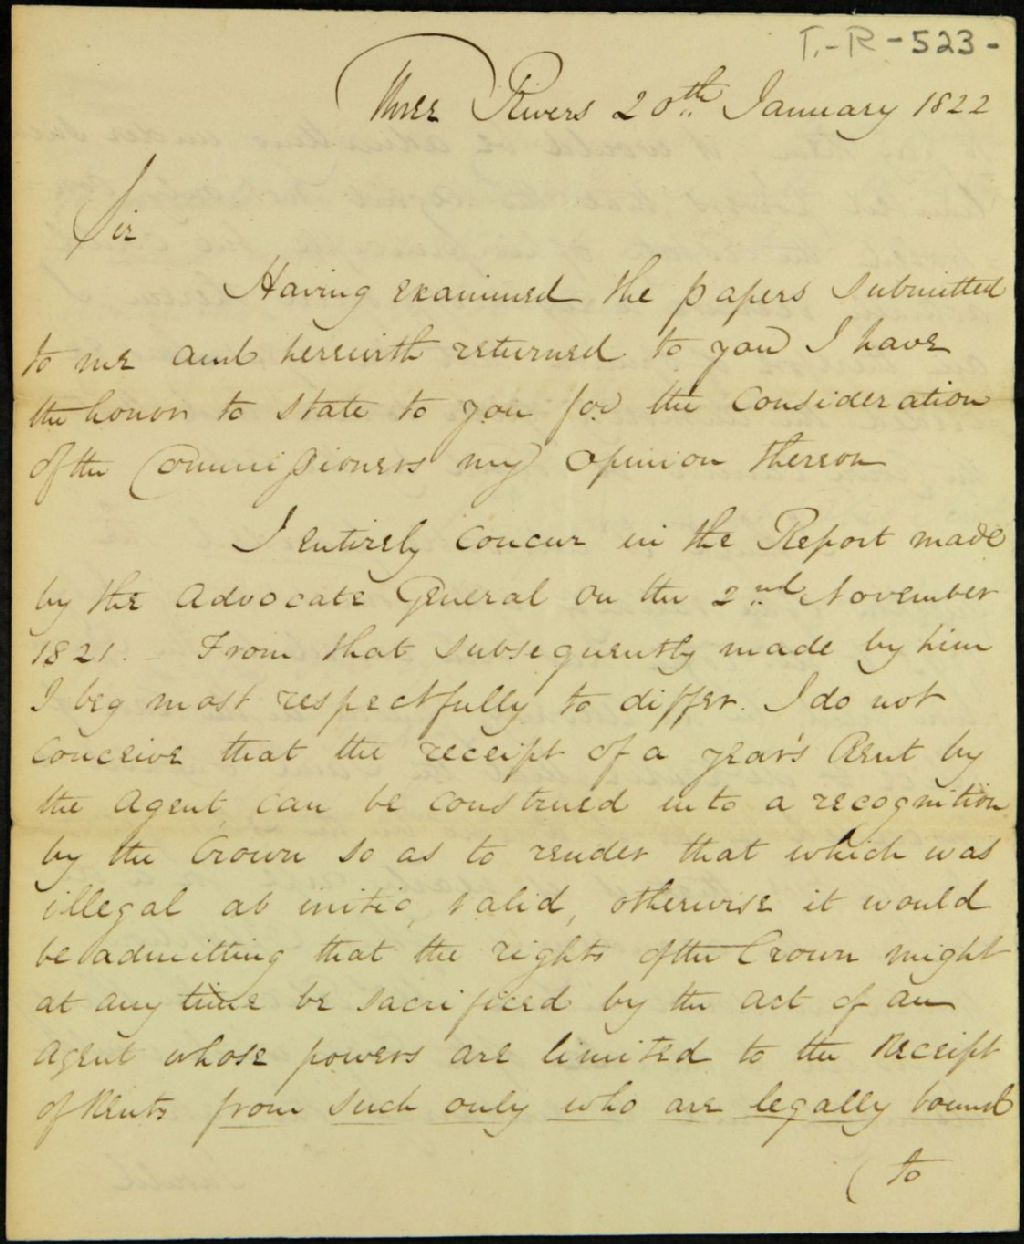 T.-R-523-
Three Rivers 20th January 1822
Sir
Having examined the papers submitted
to me and herewith returned to you I have
the honor to state to you for the Consideration
of the Commissioners my opinion thereon
I entirely concur in the Report made
by the Advocate General on the 2nd November
1821. From that subsequently made by him
I beg most respectfully to differ. I do not
conceive that the receipt of a year's Rent by
the Agent, can be construed into a recognition
by the Crown so as to render that which was
illegal ab initio, valid, otherwise it would
be admitting that the rights of the Crown might
at any time be sacrificed by the act of an
Agent whose powers are limited to the Receipt
of Rents from such only who are legally bound
(to